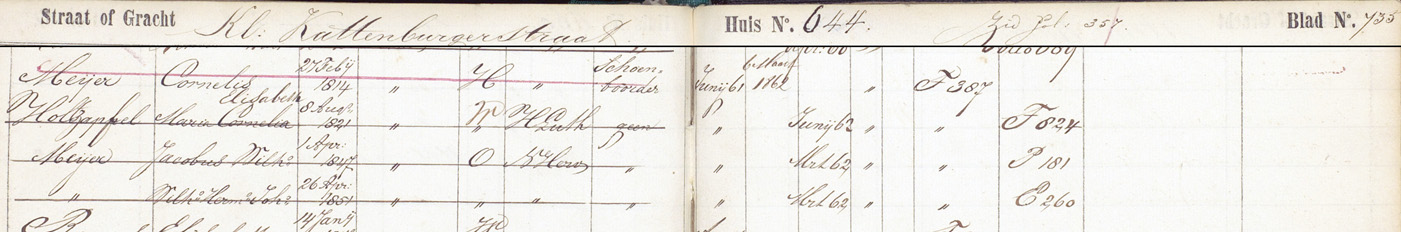 Straat of Gracht Kl: Kattenburgerstraat Huis No. 644. Zie fol. 357 Blad No. 735
Meijer Cornelis 27 Feby 1814 " H " Schoen- Junij 61 1862 " F 387
Holtzappel Maria Cornelia Elisabeth 8 Aug. 1821 " " H Luth geen " Junij 62 " " F 824
Meijer Jacobus Wilh. 1 Apr: 1847 " O N Herv " " Mrt 62 " " P 181
" Wilh. Herm. Joh. 26 Apr: 1851 " " " " " Mrt 62 " C 260
14 Janij